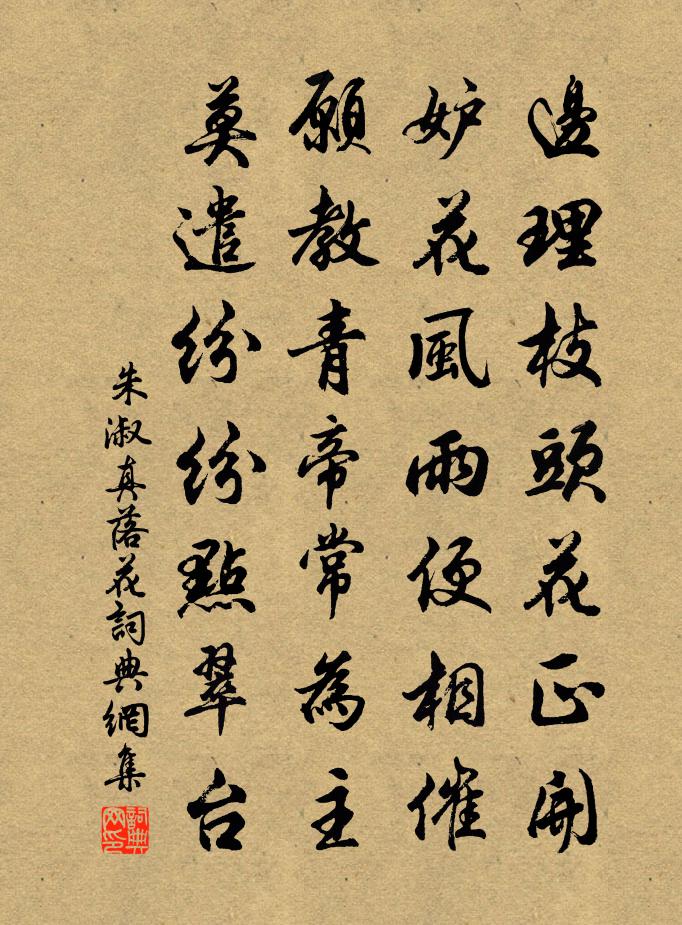 邊理枝頭花正開
妒花風雨便相催
願教青帝常為主
莫遣紛紛點翠台
朱淑真落花詞典網集
詞典网印